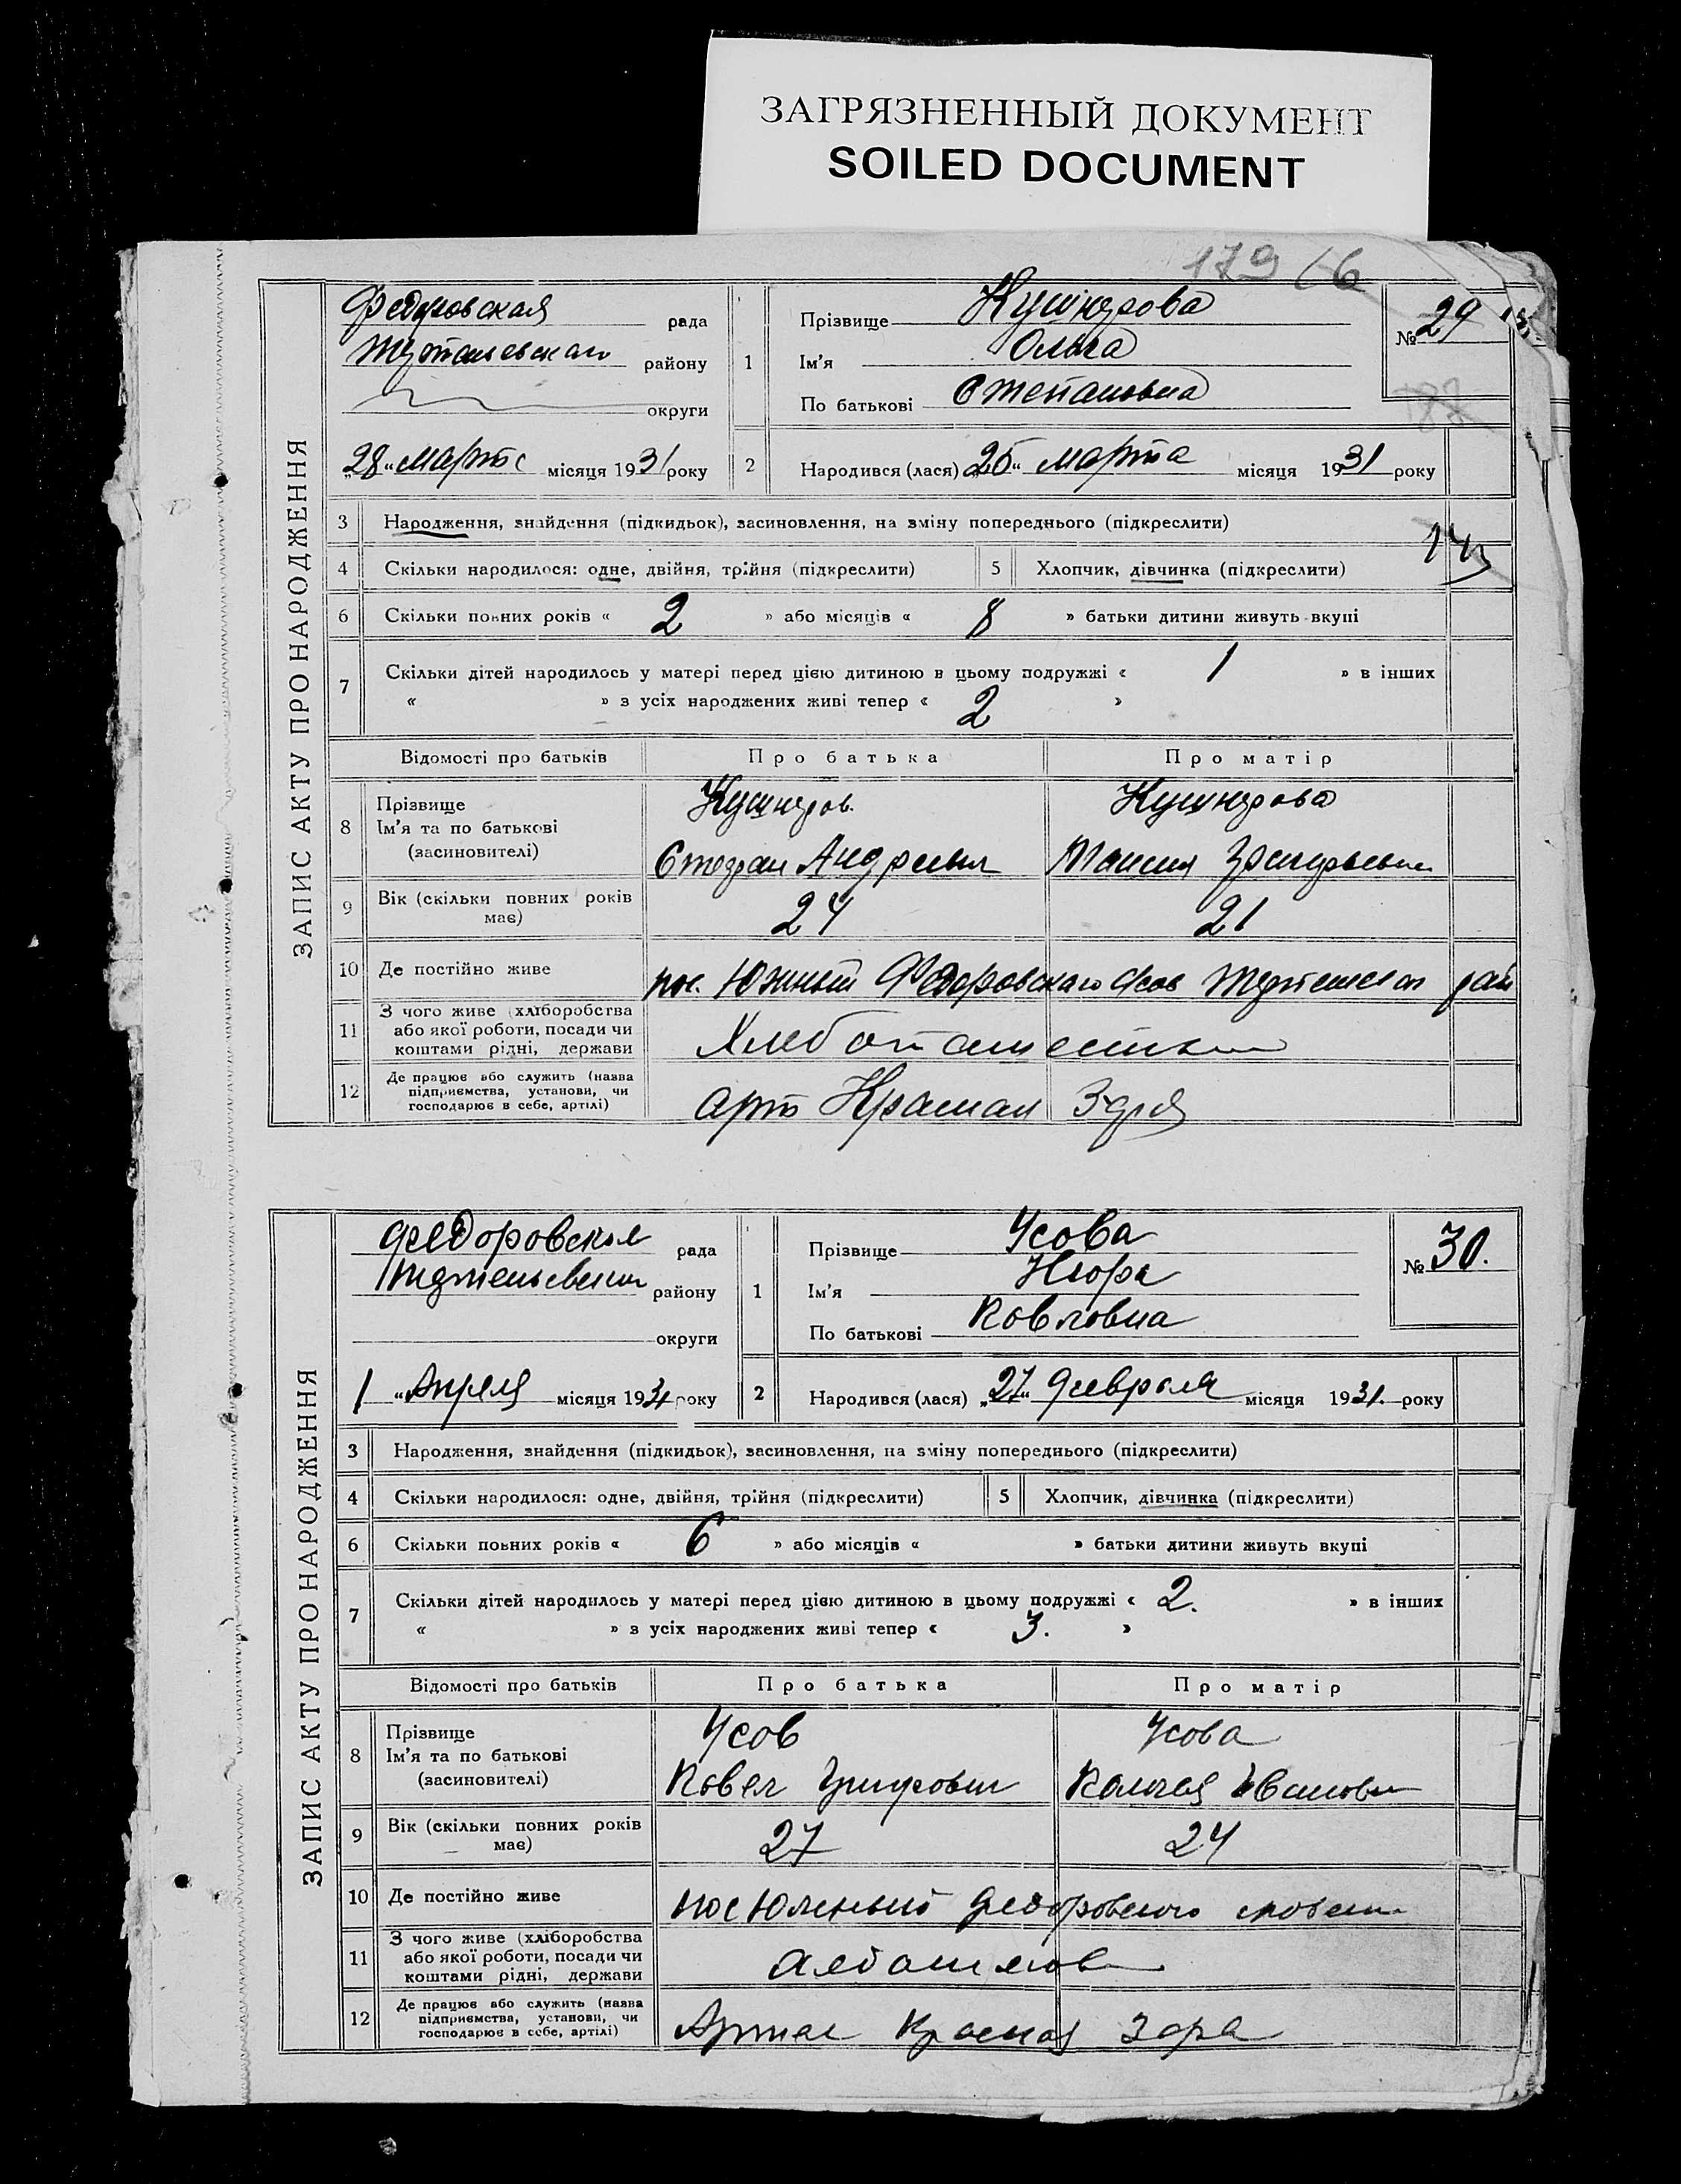 ЗАГРЯЗНЕННЫЙ ДОКУМЕНТ
SOILED DOCUMENT
179
ЗАПИС АКТУ ПРО НАРОДЖЕННЯ
Федоровская рада
району
округи
„28“ Марта місяця 1931 року
1 Прізвище Кушнирова
Ім'я Ольга
По батькові Степановна
№ 29
2 Народився (лася) „25“ марта місяця 1931 року
3 Народження, знайдення (підкидьок), засиновлення, на зміну попереднього (підкреслити)
4 Скільки народилося: одне, двійня, трійня (підкреслити) 5 Хлопчик, дівчинка (підкреслити)
6 Скільки повних років « 2 » або місяців « 8 » батьки дитини живуть вкупі
7 Скільки дітей народилось у матері перед цією дитиною в цьому подружжі « 1 » в інших
« » з усіх народжених живі тепер « 2 »
Відомості про батьків Про батька Про матір
8 Прізвище Кушниров Кушнирова
Ім'я та по батькові
(засиновителі) Степан Андреевич Таисия Григорьевна
9 Вік (скільки повних років
має) 24 21
10 Де постійно живе пос. Южный Федоровскаго рай
11 З чого живе (хліборобства
або якої роботи, посади чи
коштами рідні, держави
12 Де працює або служить (назва
підприємства, установи, чи
господарює в себе, артілі) арт Красная Заря
ЗАПИС АКТУ ПРО НАРОДЖЕННЯ
Федоровская рада
району
округи
1 “ Апреля місяця 1931 року
1 Прізвище Усова
Ім'я Нюра
По батьковіПовловна
№ 30.
2 Народився (лася) „27“ Февраля місяця 1931. року
3 Народження, знайдення (підкидьок), засиновлення, на зміну попереднього (підкреслити)
4 Скільки народилося: одне, двійня, трійня (підкреслити) 5 Хлопчик, дівчинка (підкреслити)
6 Скільки повних років « 6 » або місяців « » батьки дитини живуть вкупі
7 Скільки дітей народилось у матері перед цією дитиною в цьому подружжі « 2. » в інших
« » з усіх народжених живі тепер « 3. »
Відомості про батьків Про батька Про матір
8 Прізвище Усов Усова
Ім'я та по батькові
(засиновителі) Повел Григорович Ивановн
9 Вік (скільки повних років
має) 27 24
10 Де постійно живе пос Юженый Федоровского
11 З чого живе (хліборобства
або якої роботи, посади чи
коштами рідні, держави
12 Де працює або служить (назва
підприємства, установи, чи
господарює в себе, артілі) Артел Красная Зара